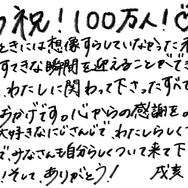 祝!100万人!♡
ときには想像すらしていなかった
すてきな瞬間を迎えることができ
わたしに関わって下さったすべて
おかげです。心からの感謝を。
大好きなにじさんじで、わたしらしく
で、みなさんも自分らしくついて来て下
!そして、ありがとう! 戌亥